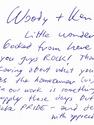 Woody + Ken
Little wonder
booked from here
you guys ROCK! Th
caring about what you
as the homeowner
in our work is something
supply these days but
PRIDE - and
with